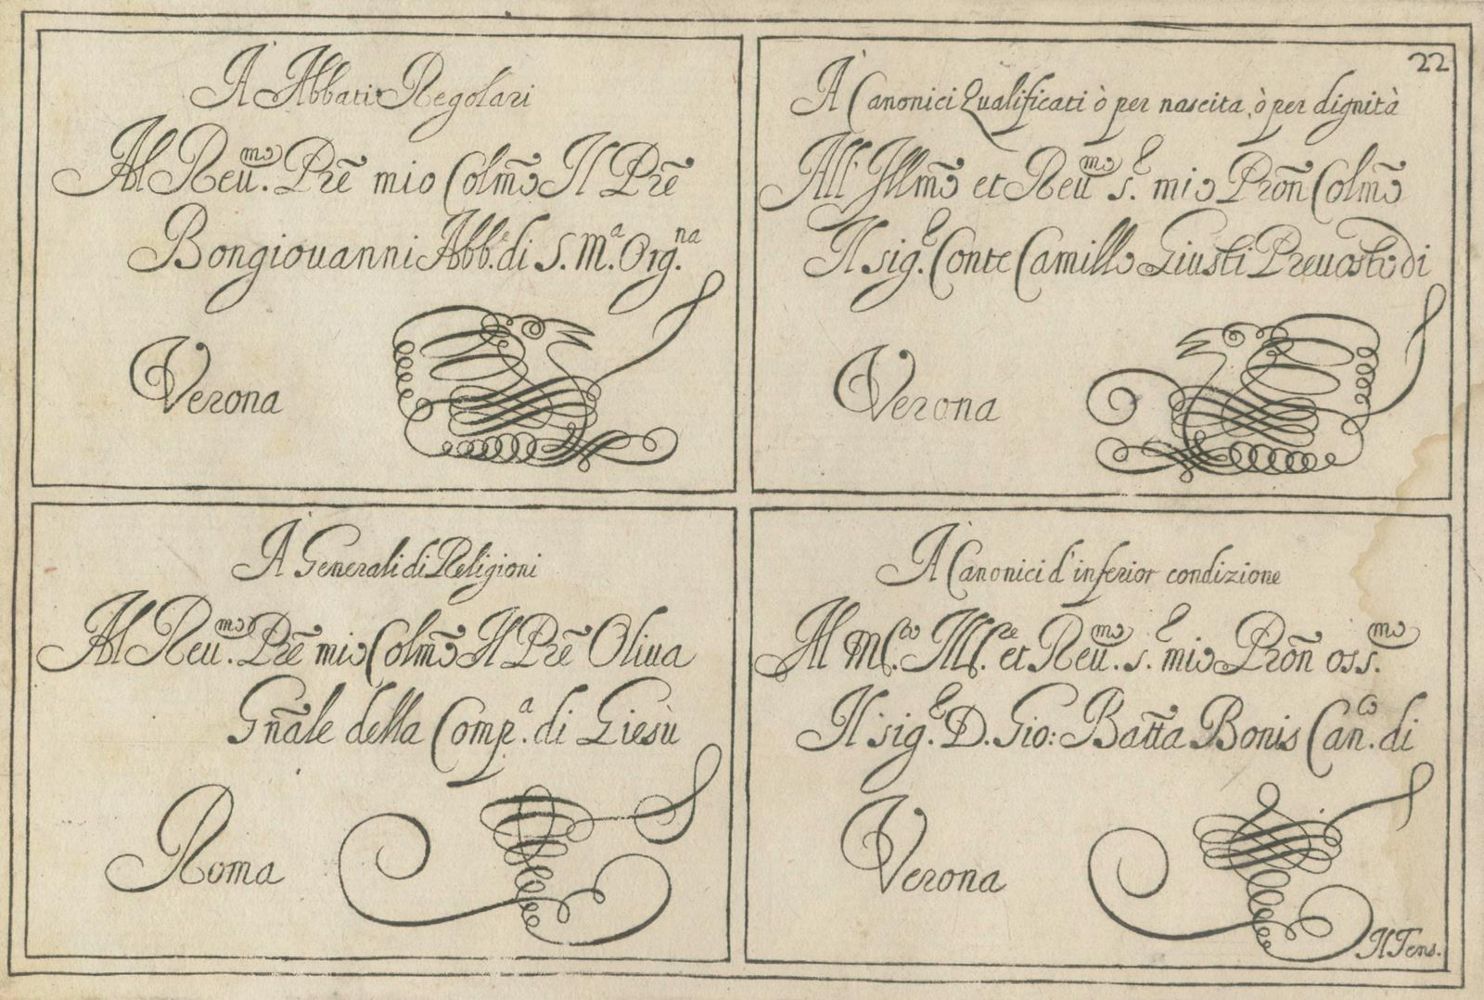 À Abbati Regolari
Al Reu.mo Prẽ mio Colm̃o Il Prẽ
Bongiouanni Abb.e di S. M.a Org.na
Verona
22
À Canonici Qualificati ò per nascita, ò per dignità
All' Illm̃o et Reu.mo s.e mio Pron̄ Colm̃o
Il sig.e Conte Camillo Giusti Preuosto di
Verona
À Generali di Religioni
Al Reu.mo Prẽ mio Colm̃o Il Prẽ Oliua
Gñale della Comp.a di Giesù
Roma
À Canonici d'inferior condizione
Al Ml.co Ill.re et Reu.mo s.e mio Pron̄ oss.mo
Il sig.e D. Gio: Batt̃a Bonis Can.co di
Verona
Il Tens.